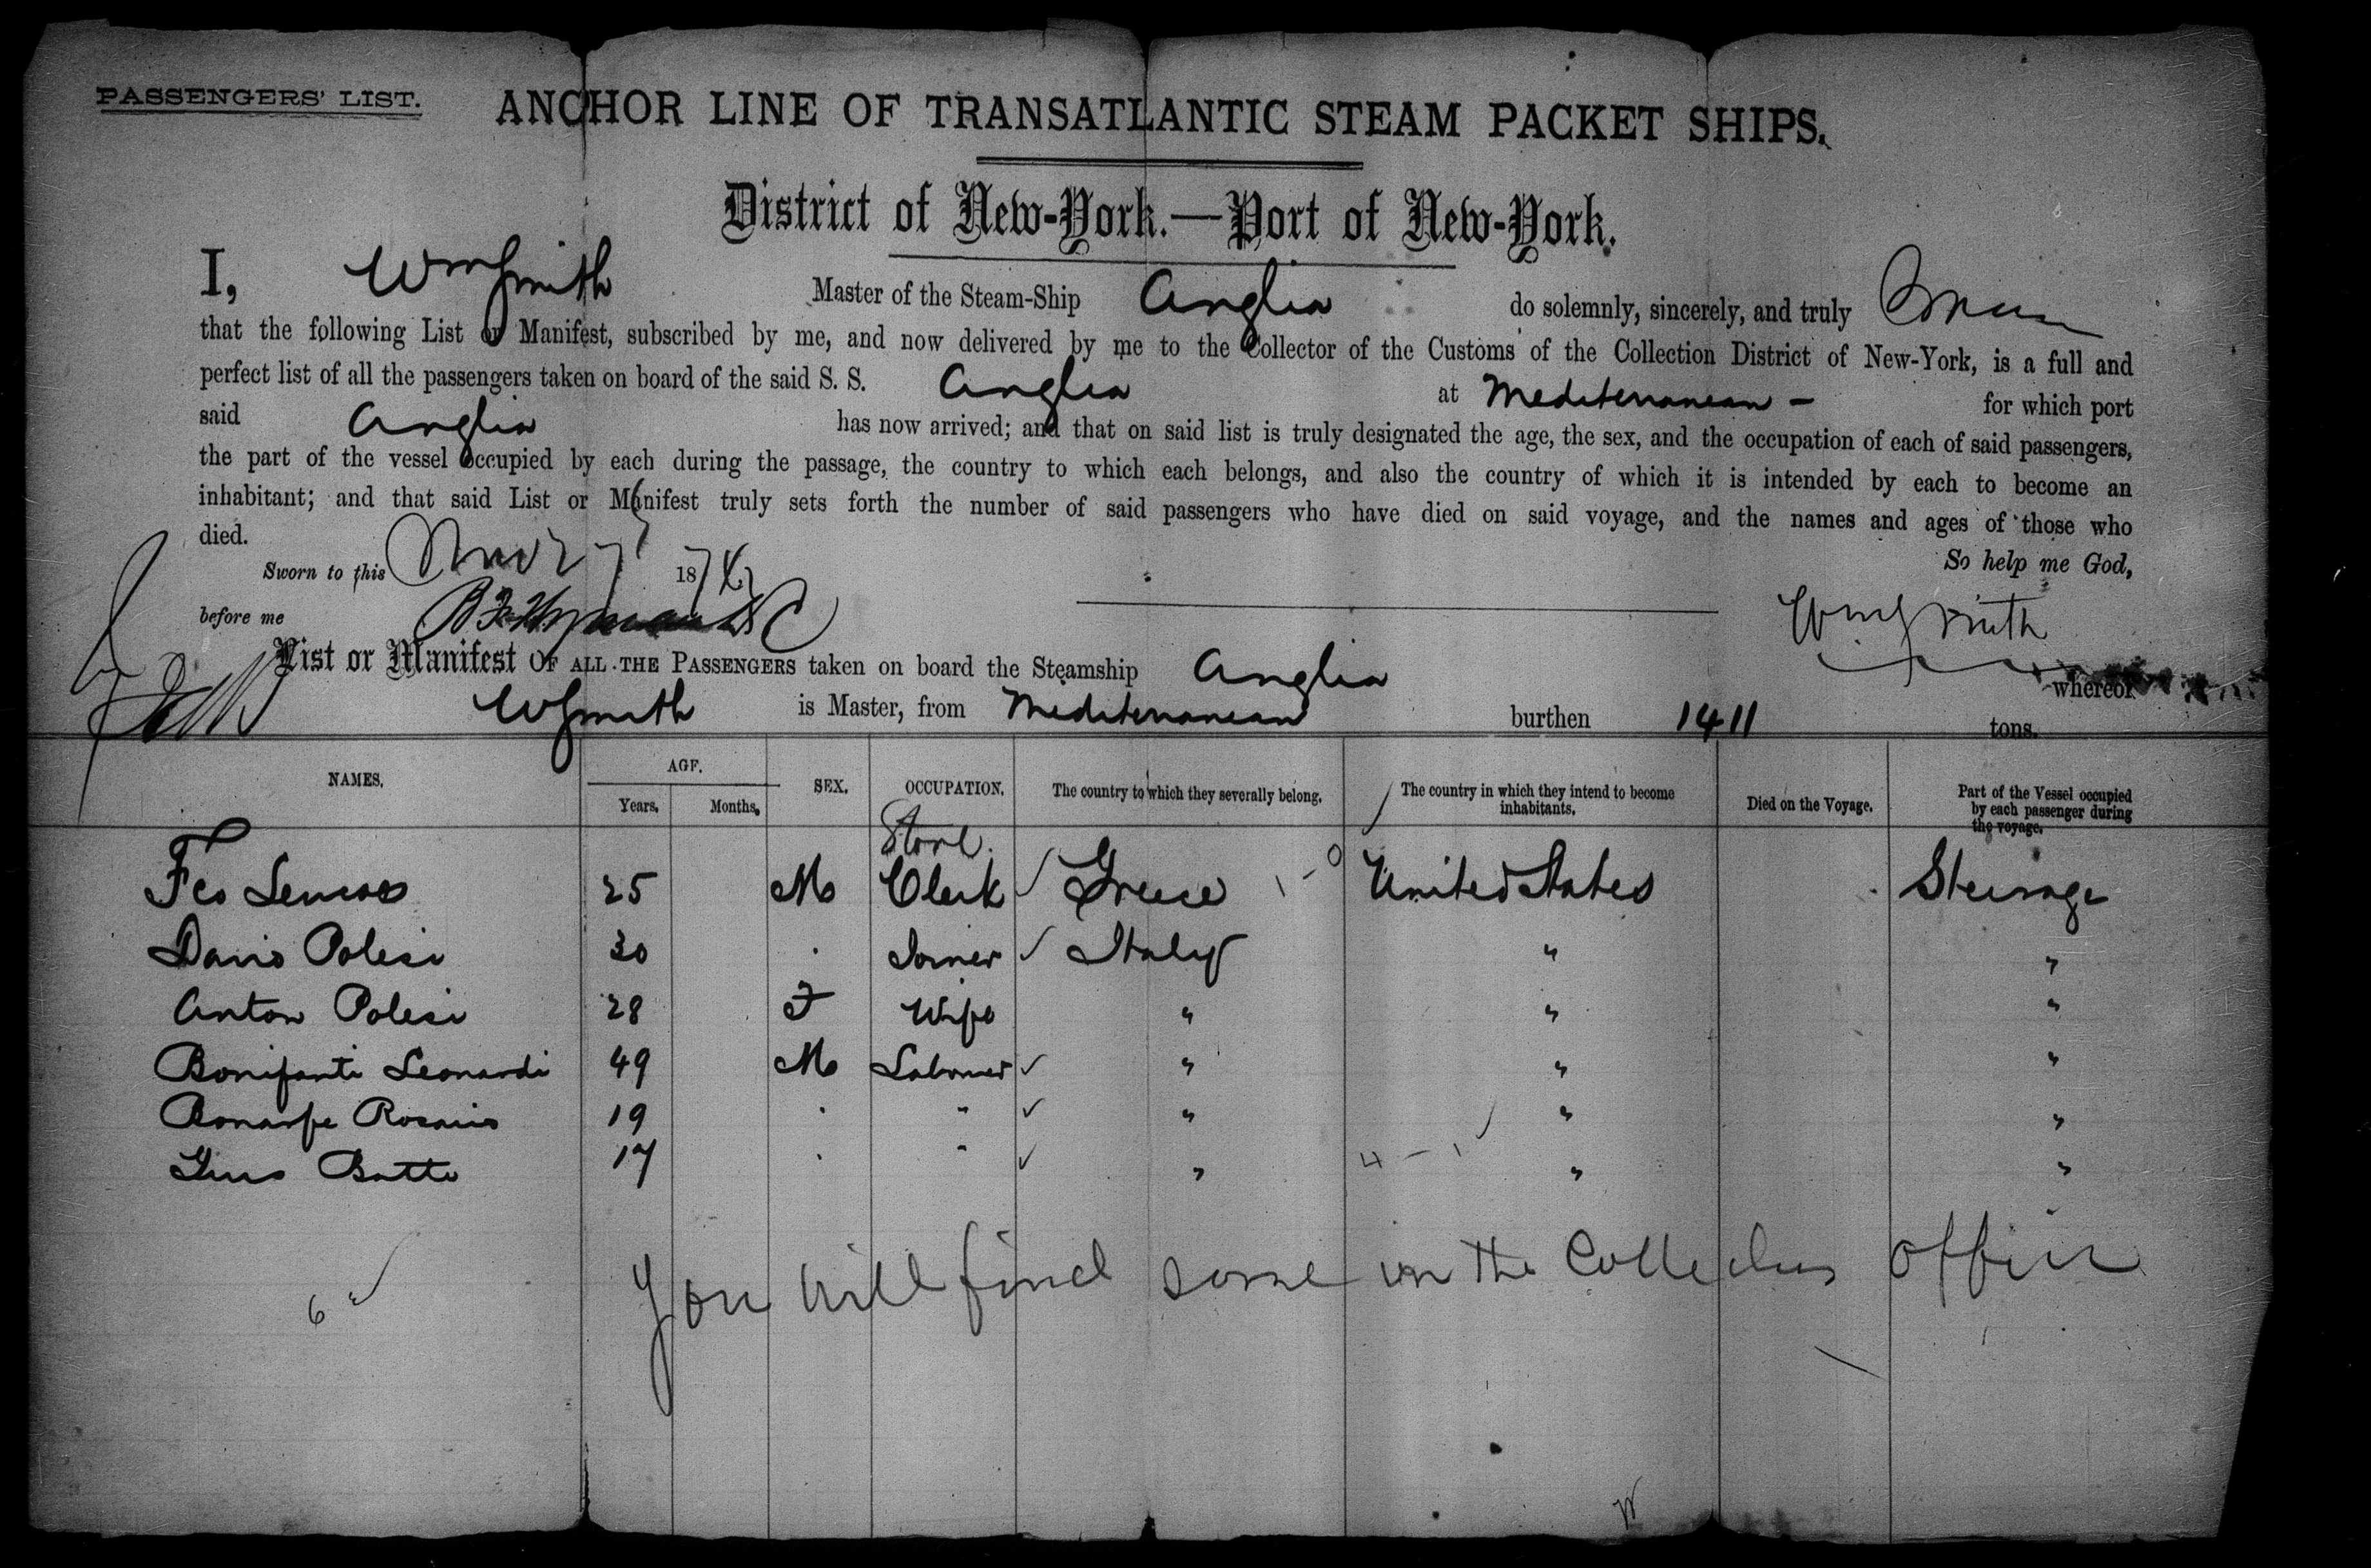 PASSENGERS' LIST.
ANCHOR LINE OF TRANSATLANTIC STEAM PACKET SHIPS.
District of New-York.—Port of New-York.
I, Wm Smith Master of the Steam-Ship Anglia do solemnly, sincerely, and truly
that the following List or Manifest, subscribed by me, and now delivered by me to the Collector of the Customs of the Collection District of New-York, is a full and
perfect list of all the passengers taken on board of the said S. S. Anglia at Mediterranean – for which port
said Anglia has now arrived; and that on said list is truly designated the age, the sex, and the occupation of each of said passengers,
the part of the vessel occupied by each during the passage, the country to which each belongs, and also the country of which it is intended by each to become an
inhabitant; and that said List or Manifest truly sets forth the number of said passengers who have died on said voyage, and the names and ages of those who
died.
So help me God,
Sworn to this 27 187
before me
Wm Smith
List or Manifest OF ALL THE PASSENGERS taken on board the Steamship Anglia whereof
W Smith is Master, from Mediterranean burthen 1411 tons.
NAMES. AGE. Years. Months. SEX. OCCUPATION. The country to which they severally belong. The country in which they intend to become inhabitants. Died on the Voyage. Part of the Vessel occupied by each passenger during the voyage.
Store
Fco 25 M Clerk Greece United States Steerage
Polesi 30 . Joiner Italy " "
Anton Polesi 28 F Wife " " "
Bonifanti Leonardi 49 M Labourer " " "
Rosario 19 . " " " "
Batti 17 . " " " "
6
You will find some in the Collectors office